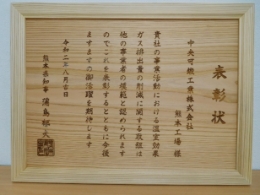 表彰状
中央可鍛工業株式会社
熊本工場 様
貴社の事業活動における温室効果
ガス排出量の削減に関する取組は
他の事業者の模範と認められます
のでこれを表彰するとともに今後
ますますの御活躍を期待します
令和二年八月吉日
熊本県知事 蒲島郁夫